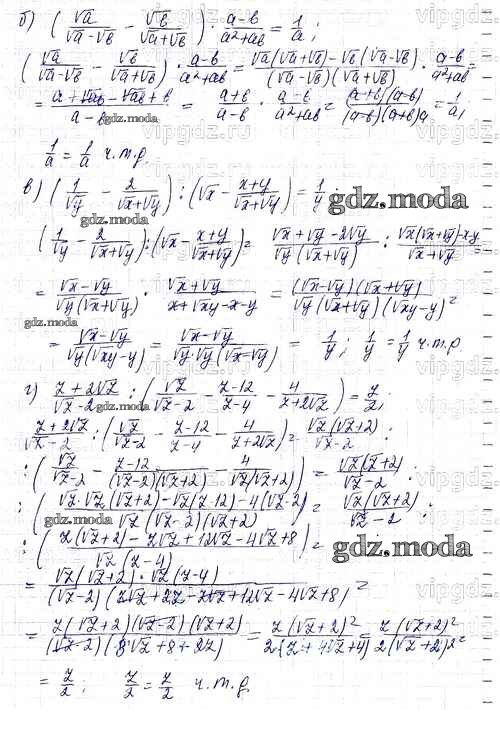 б) (√a/(√a-√b) - √b/(√a+√b)) · (a-b)/(a²+ab) = 1/a;
(√a/(√a-√b) - √b/(√a+√b)) · (a-b)/(a²+ab) = (√a(√a+√b)-√b(√a-√b))/((√a-√b)(√a+√b)) · (a-b)/(a²+ab) =
= (a+√ab-√ab+b)/(a-b) = (a+b)/(a-b) · (a-b)/(a²+ab) = ((a+b)(a-b))/((a-b)(a+b)a) = 1/a;
gdz.moda
1/a = 1/a ч.т.д.
в) (1/√y - 2/(√x+√y)) : (√x - (x+y)/(√x+√y)) = 1/y;
gdz.moda
gdz.moda
(1/√y - 2/(√x+√y)) : (√x - (x+y)/(√x+√y)) = (√x+√y-2√y)/(√y(√x+√y)) : (√x(√x+√y)-x-y)/(√x+√y) =
= (√x-√y)/(√y(√x+√y)) · (√x+√y)/(x+√xy-x-y) = ((√x-√y)(√x+√y))/(√y(√x+√y)(√xy-y)) =
gdz.moda
= (√x-√y)/(√y(√xy-y)) = (√x-√y)/(√y√y(√x-√y)) = 1/y; 1/y = 1/y ч.т.д
г) (z+2√z)/(√z-2) : (√z/(√z-2) - (z-12)/(z-4) - 4/(z+2√z)) = z/2;
gdz.moda
(z+2√z)/(√z-2) : (√z/(√z-2) - (z-12)/(z-4) - 4/(z+2√z)) = √z(√z+2)/(√z-2) :
: (√z/(√z-2) - (z-12)/((√z-2)(√z+2)) - 4/(√z(√z+2))) = √z(√z+2)/(√z-2) :
: ((√z·√z(√z+2)-√z(z-12)-4(√z-2))/(√z(√z-2)(√z+2))) = √z(√z+2)/(√z-2) :
: ((z(√z+2)-z√z+12√z-4√z+8)/(√z(z-4))) =
gdz.moda
= (√z(√z+2)·√z(z-4))/((√z-2)(z√z+2z-z√z+12√z-4√z+8)) =
= (z(√z+2)(√z-2)(√z+2))/((√z-2)(8√z+8+2z)) = z(√z+2)²/(2(z+4√z+4)) = z(√z+2)²/(2(√z+2)²) =
= z/2; z/2 = z/2 ч.т.д.